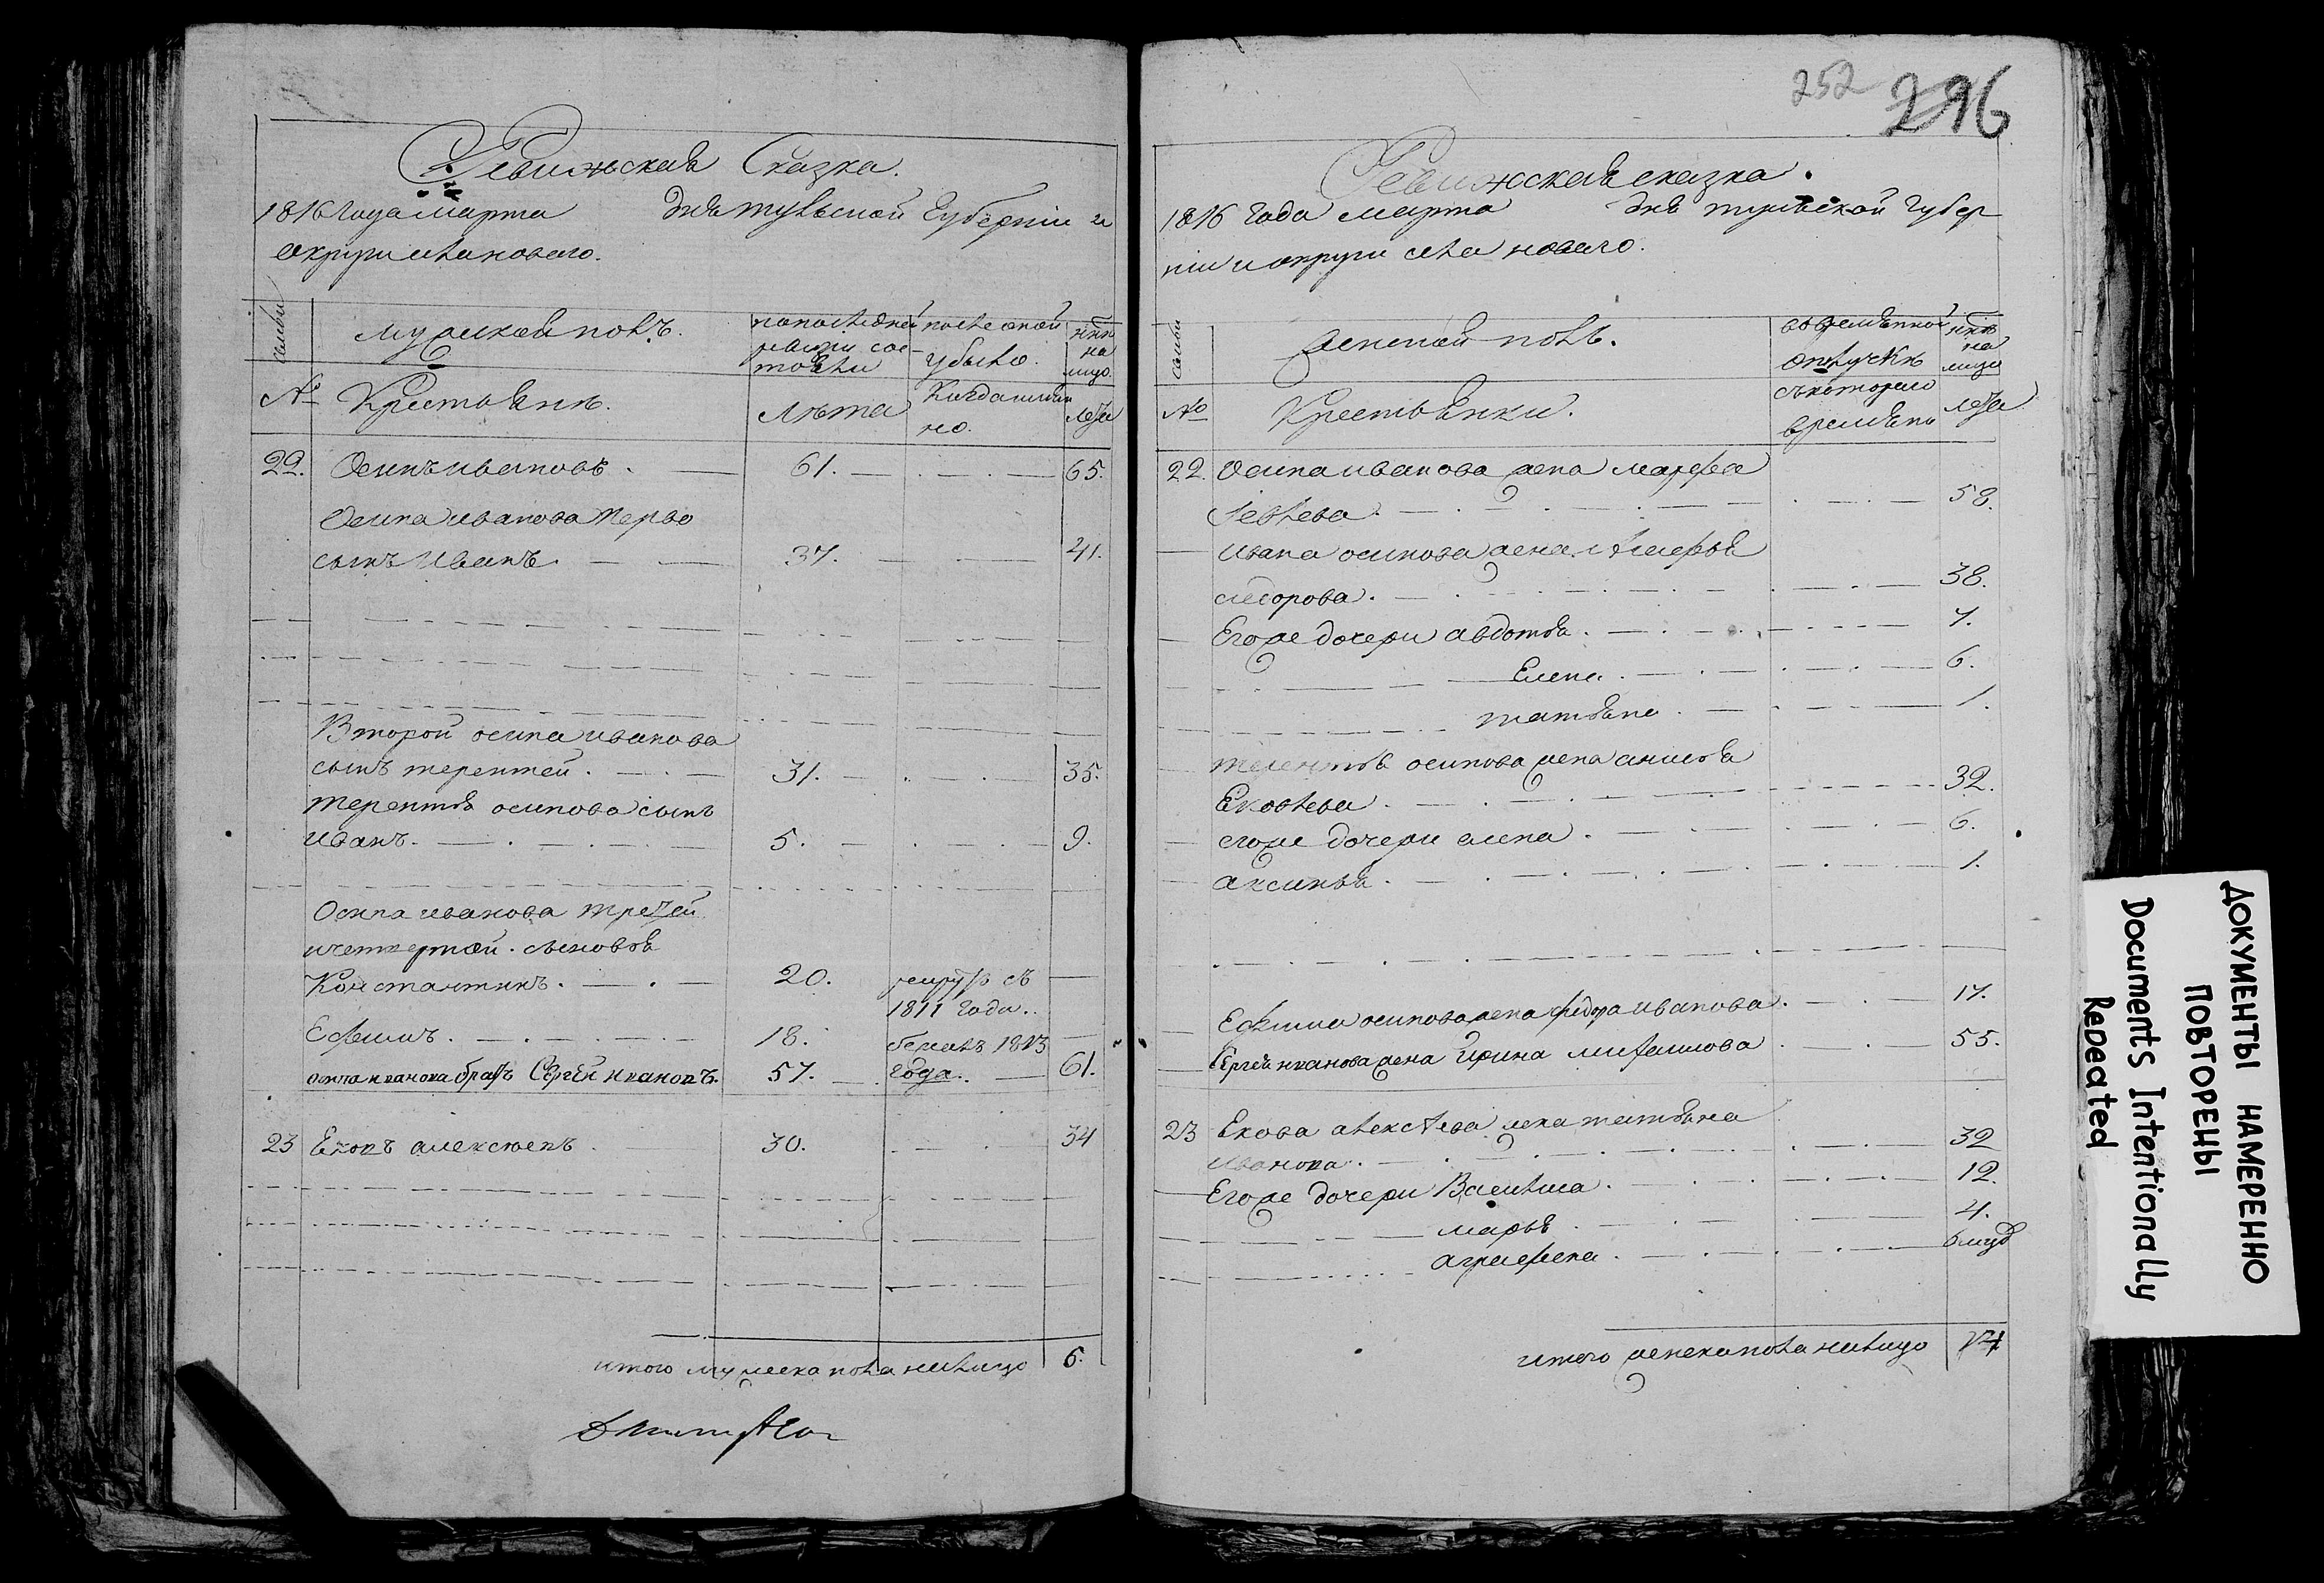 Ревижская Сказка.
1816 года марта дня тульской Губернии и
округи села новаго.
семьи
мужеской полъ.
по последней
ревизи сос-
тояли
после оной
убыло.
ныне
на
лицо.
№
Крестьяне.
Лѣта
Когда имян
но.
лета
22. Осипъ ивановъ. 61. 65.
Осипа иванова перво
сынъ Иванъ. 37. 41.
Второй осипа иванова
сынъ терентей. 31. 35.
терентья осипова сынъ
иванъ. 5. 9.
Осипа иванова третей
и четвертой. сыновья
Константинъ. 20. рекрут съ
1811 года..
Ефимъ. 18. бежалъ 1813
осипа иванова братъ Сергей ивановъ. 57. года. 61.
23 Ековъ алексеевъ. 30. 34
итого мужеска пола налицо 6.
252 296
Ревижская сказка.
1816 года марта дня тульской губер
нии и округи села новаго.
семьи
женской полъ.
во времянной
отлучке
ныне
на
лицо
№
Крестьянки.
съ котораго
времяни
лета
22. Осипа иванова жена марфа
58.
ивана осипова жена
сидорова. 38.
Егоже дочери авдотья. 7.
Елена. 6.
татьяна. 1.
терентья осипова жена анисья
Ековлева. 32.
егоже дочери алена. 6.
аксинья. 1.
Ефима осипова жена федора иванова. 17.
Сергея иванова жена Ирина михаилова 55.
23 Екова алексеева жена татьяна
иванова. 32
Егоже дочери Василиса. 12.
марья. 4.
аграфена.
итого женска пола налицо 14
ДОКУМЕНТЫ НАМЕРЕННО
ПОВТОРЕНЫ
Documents Intentionally
Repeated